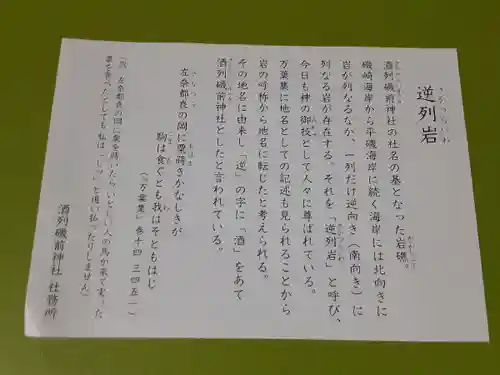 逆列岩
さかつらいわ
酒列磯前神社の社名の基となった岩礁。
磯崎海岸から平磯海岸に続く海岸には北向きに
岩が列なるなか、一列だけ逆向き(南向き)に
列なる岩が存在する。それを「逆列岩」と呼び、
今日も神の御技として人々に尊ばれている。
万葉集に地名としての記述も見られることから
岩の呼称から地名に転じたと考えられる。
その地名に由来し「逆」の字に「酒」をあて
酒列磯前神社としたと言われている。
左奈都良の岡に粟蒔きかなしきが
駒は食ぐとも我はそともはじ
(『万葉集』巻十四 三四五一)
酒列磯前神社 社務所